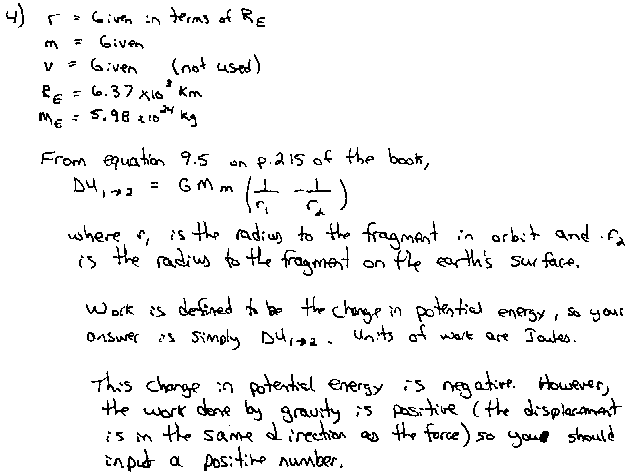 4) r = Given in terms of R_E
m = Given
v = Given (not used)
R_E = 6.37 x10^3 Km
M_E = 5.98 x10^24 kg
From equation 9.5 on p.215 of the book,
ΔU_1→2 = G M m (1/r_1 - 1/r_2)
where r_1 is the radius to the fragment in orbit and r_2
is the radius to the fragment on the earth's surface.
Work is defined to be the change in potential energy, so your
answer is simply ΔU_1→2. Units of work are Joules.
This change in potential energy is negative. However,
the work done by gravity is positive (the displacement
is in the same direction as the force) so you should
input a positive number.